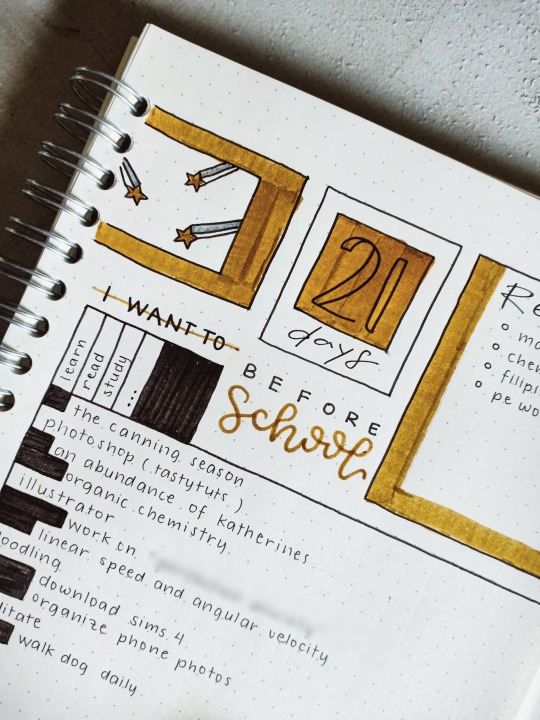 21
days
I WANT TO
BEFORE
School
learn
read
study
...
Re
ma
chem
filipi
pe wo
the canning season
photoshop (tastytuts)
an abundance of katherines
organic chemistry
illustrator
work on
linear speed and angular velocity
oodling
download sims 4
organize phone photos
itate
walk dog daily